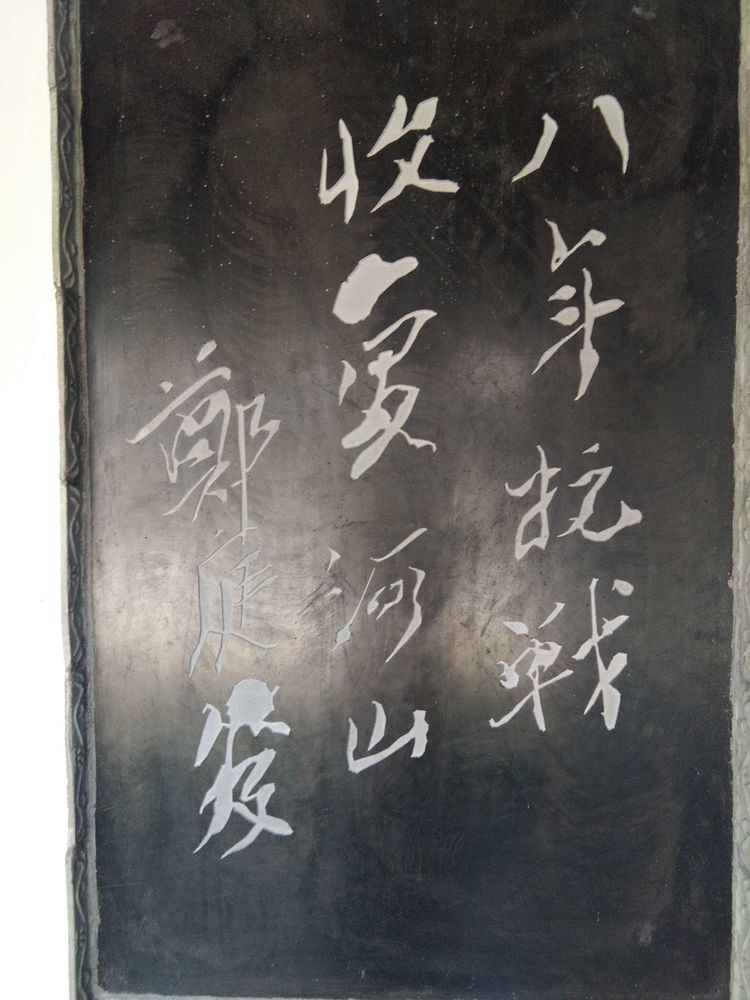 八年抗戰
收复河山
鄭庭笈